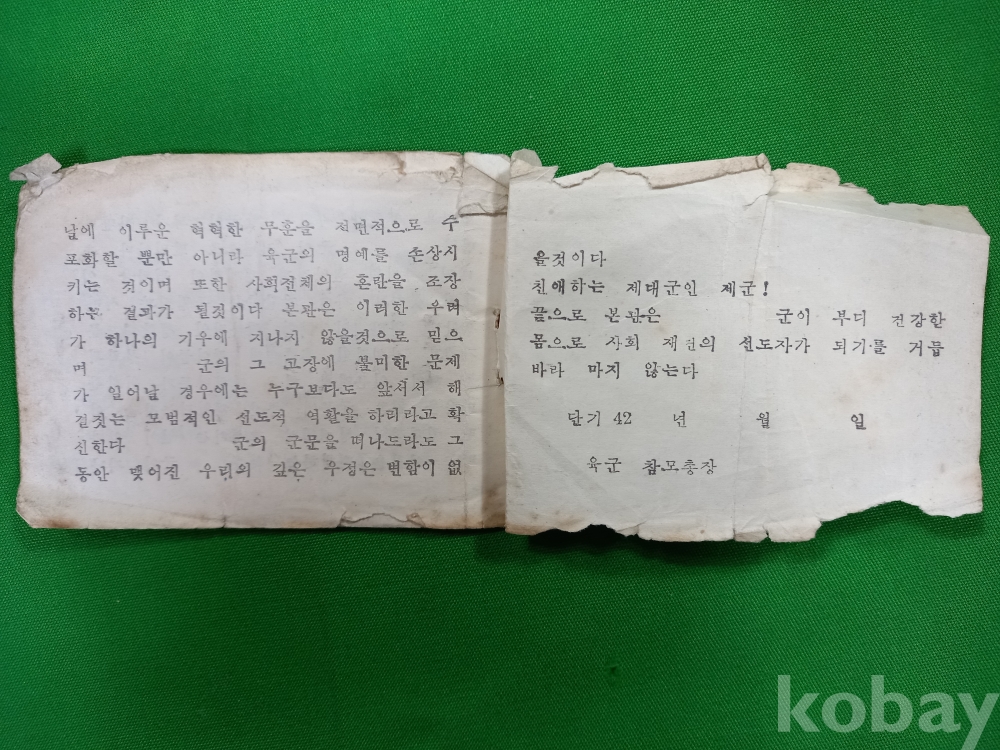 날에 이루운 혁혁한 무훈을 전면적으로 수
포화할 뿐만 아니라 육군의 명예를 손상시
키는 것이며 또한 사회전체의 혼란을 조장
하는 결과가 될것이다 본관은 이러한 우려
가 하나의 기우에 지나지 않을것으로 믿으
며 군의 그 고장에 불미한 문제
가 일어날 경우에는 누구보다도 앞서서 해
결짓는 모범적인 선도적 역활을 하리라고 확
신한다 군의 군문을 떠나드라도 그
동안 맺어진 우리의 깊은 우정은 변함이 없
을것이다
친애하는 제대군인 제군!
끝으로 본관은 군이 부디 건강한
몸으로 사회 재건의 선도자가 되기를 거듭
바라 마지 않는다
단기 42 년 월 일
육군 참모총장
kobay